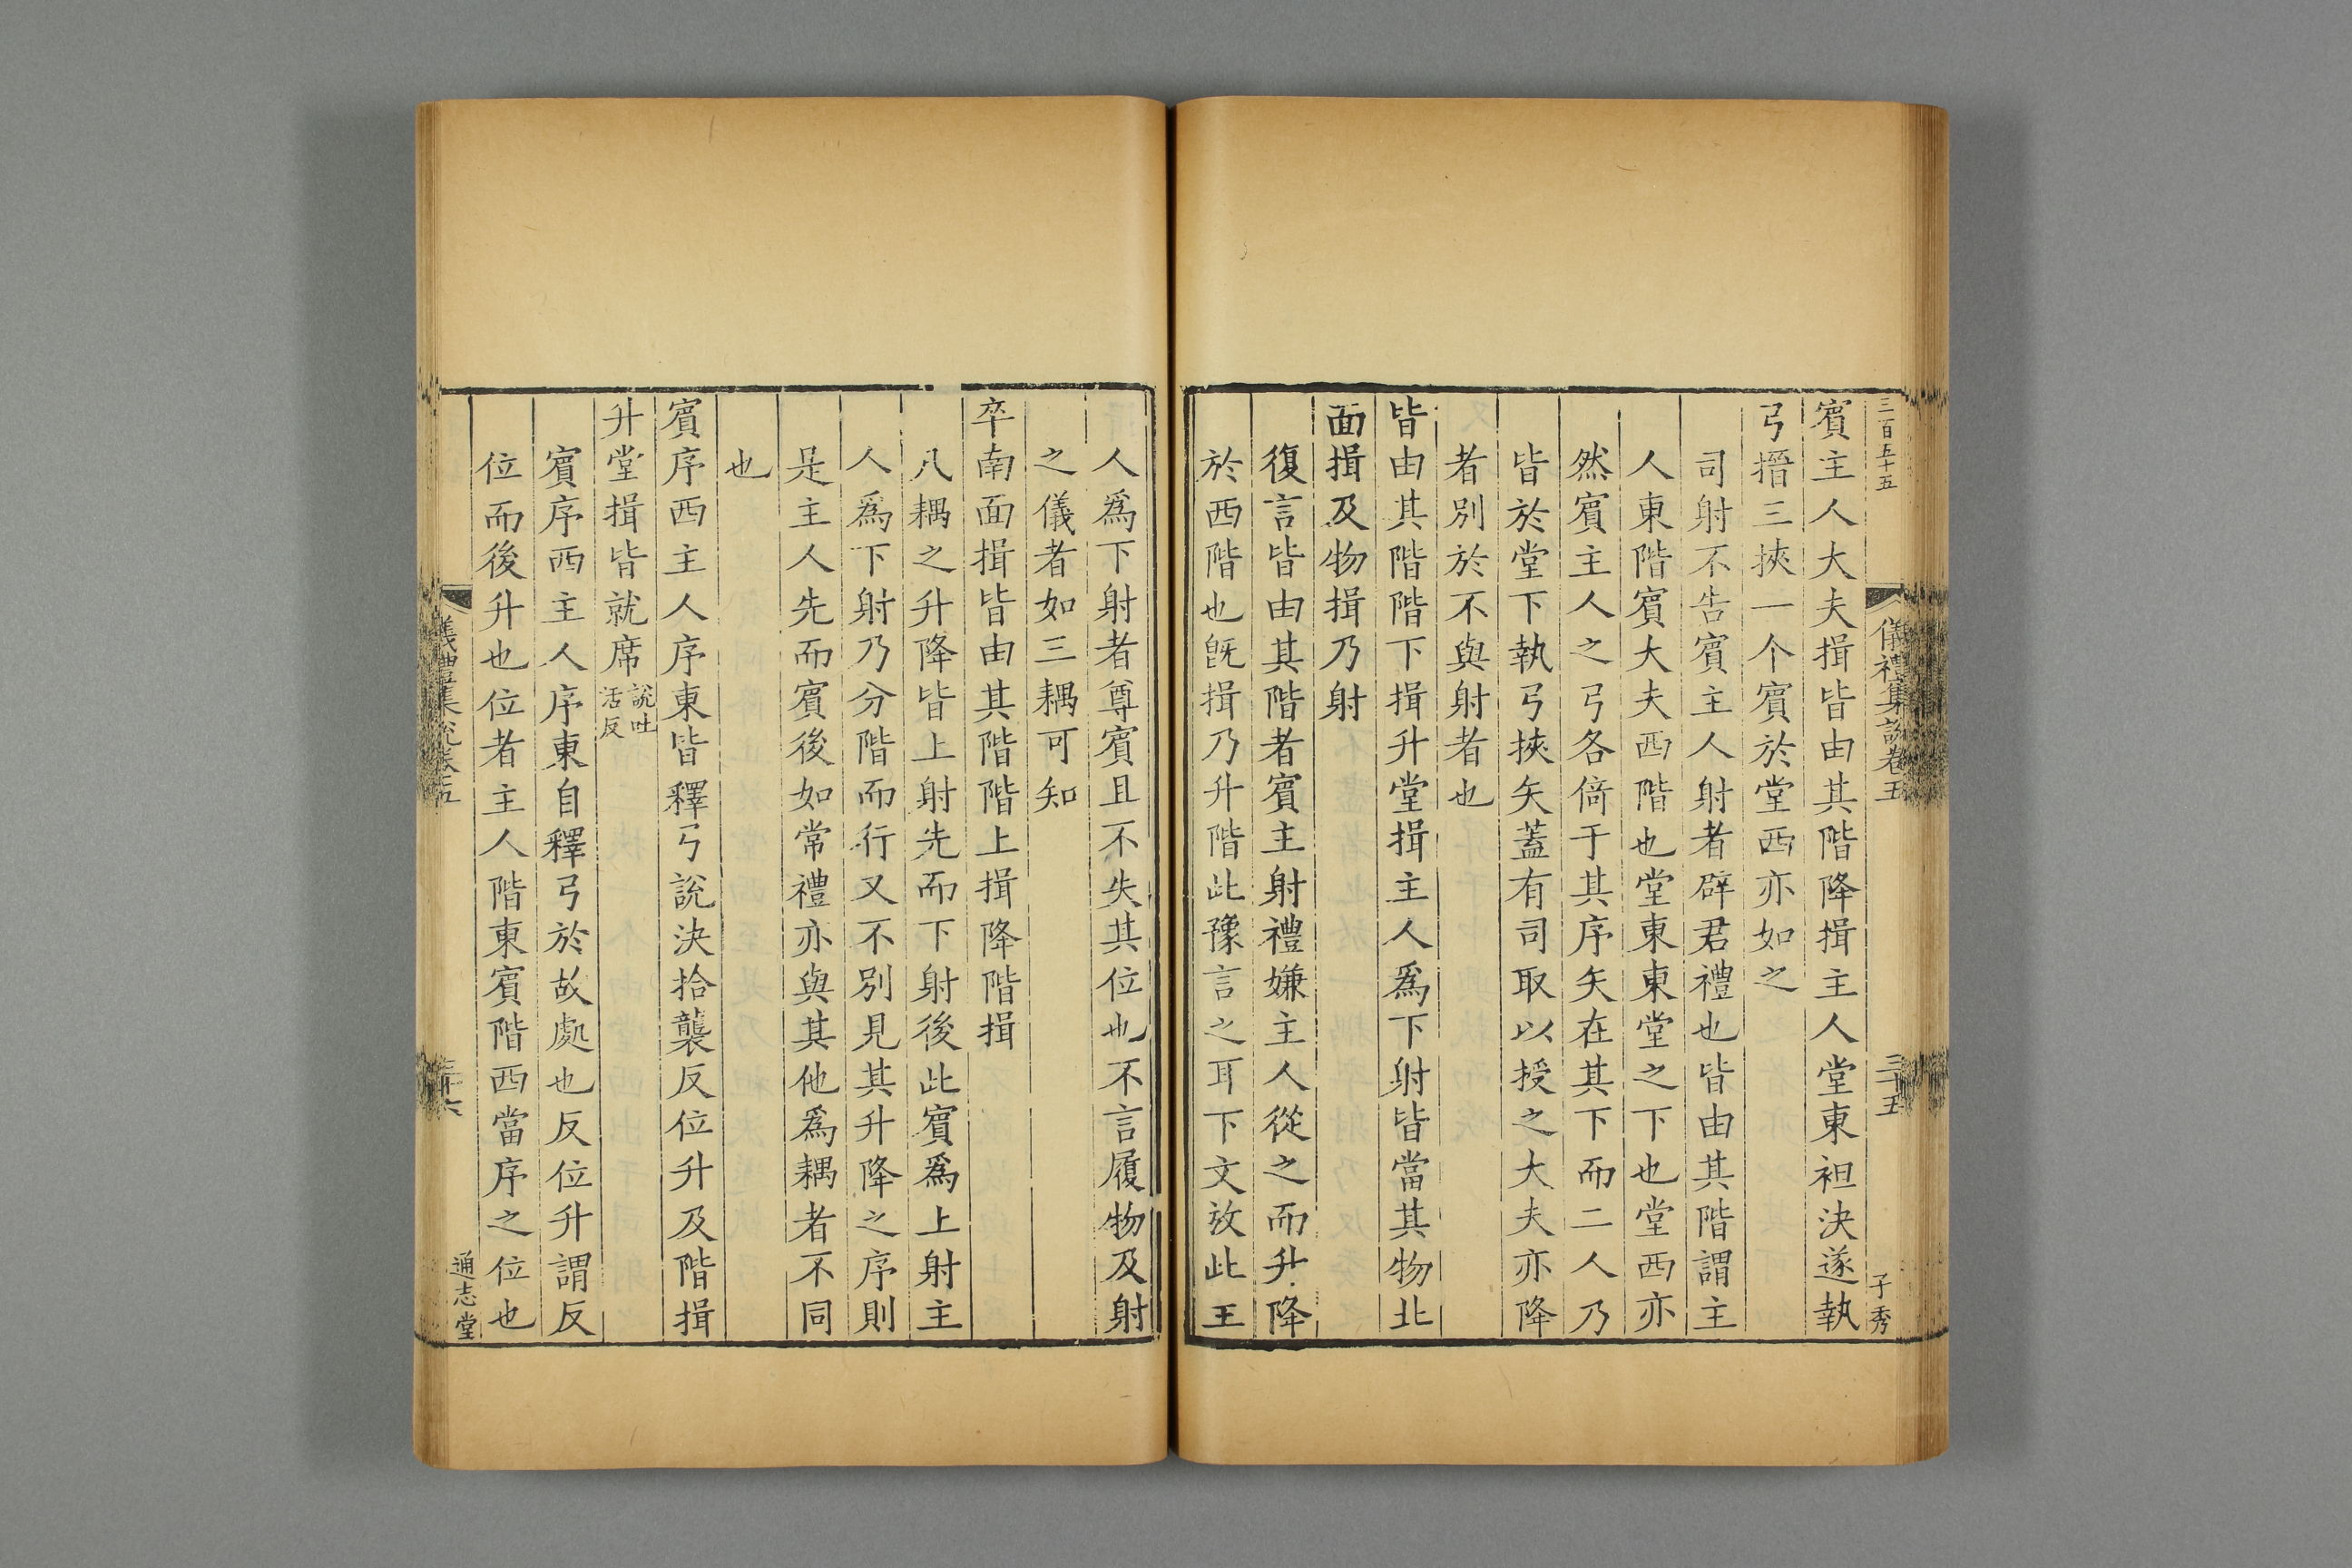 三百五十五
儀禮集說卷五
三十五
子秀
賓主人大夫揖皆由其階降揖主人堂東袒決遂執
弓搢三挾一个賓於堂西亦如之
司射不告賓主人射者辟君禮也皆由其階謂主
人東階賓大夫西階也堂東東堂之下也堂西亦
然賓主人之弓各倚于其序矢在其下而二人乃
皆於堂下執弓挾矢蓋有司取以授之大夫亦降
者別於不與射者也
皆由其階階下揖升堂揖主人爲下射皆當其物北
面揖及物揖乃射
復言皆由其階者賓主射禮嫌主人從之而升降
於西階也旣揖乃升階此豫言之耳下文放此主
人爲下射者尊賓且不失其位也不言履物及射
之儀者如三耦可知
卒南面揖皆由其階階上揖降階揖
凡耦之升降皆上射先而下射後此賓爲上射主
人爲下射乃分階而行又不別見其升降之序則
是主人先而賓後如常禮亦與其他爲耦者不同
也
賓序西主人序東皆釋弓說決拾襲反位升及階揖
升堂揖皆就席說吐活反
賓序西主人序東自釋弓於故處也反位升謂反
位而後升也位者主人階東賓階西當序之位也
儀禮集說卷五
三十六
通志堂